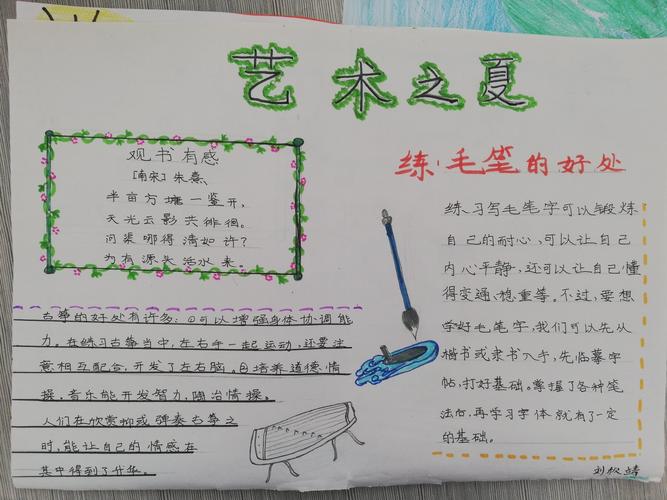 艺术之夏
观书有感
[南宋]朱熹
半亩方塘一鉴开,
天光云影共徘徊。
问渠哪得清如许?
为有源头活水来。
古筝的好处有许多:①可以增强身体协调能
力。在练习古筝当中,左右手一起运动,还要注
意相互配合,开发了左右脑。②培养道德情
操,音乐能开发智力,陶冶情操。
人们在欣赏聊或弹奏古筝之
时,能让自己的情感在
其中得到了升华。
练·毛笔的好处
练习写毛笔字可以锻炼
自己的耐心、可以让自己
内心平静,还可以让自己懂
得变通、稳重等。不过,要想
学好毛笔字,我们可以先从
楷书或隶书入手,先临摹字
帖,打好基础。掌握了各种笔
法后,再学习字体就有了一定
的基础。